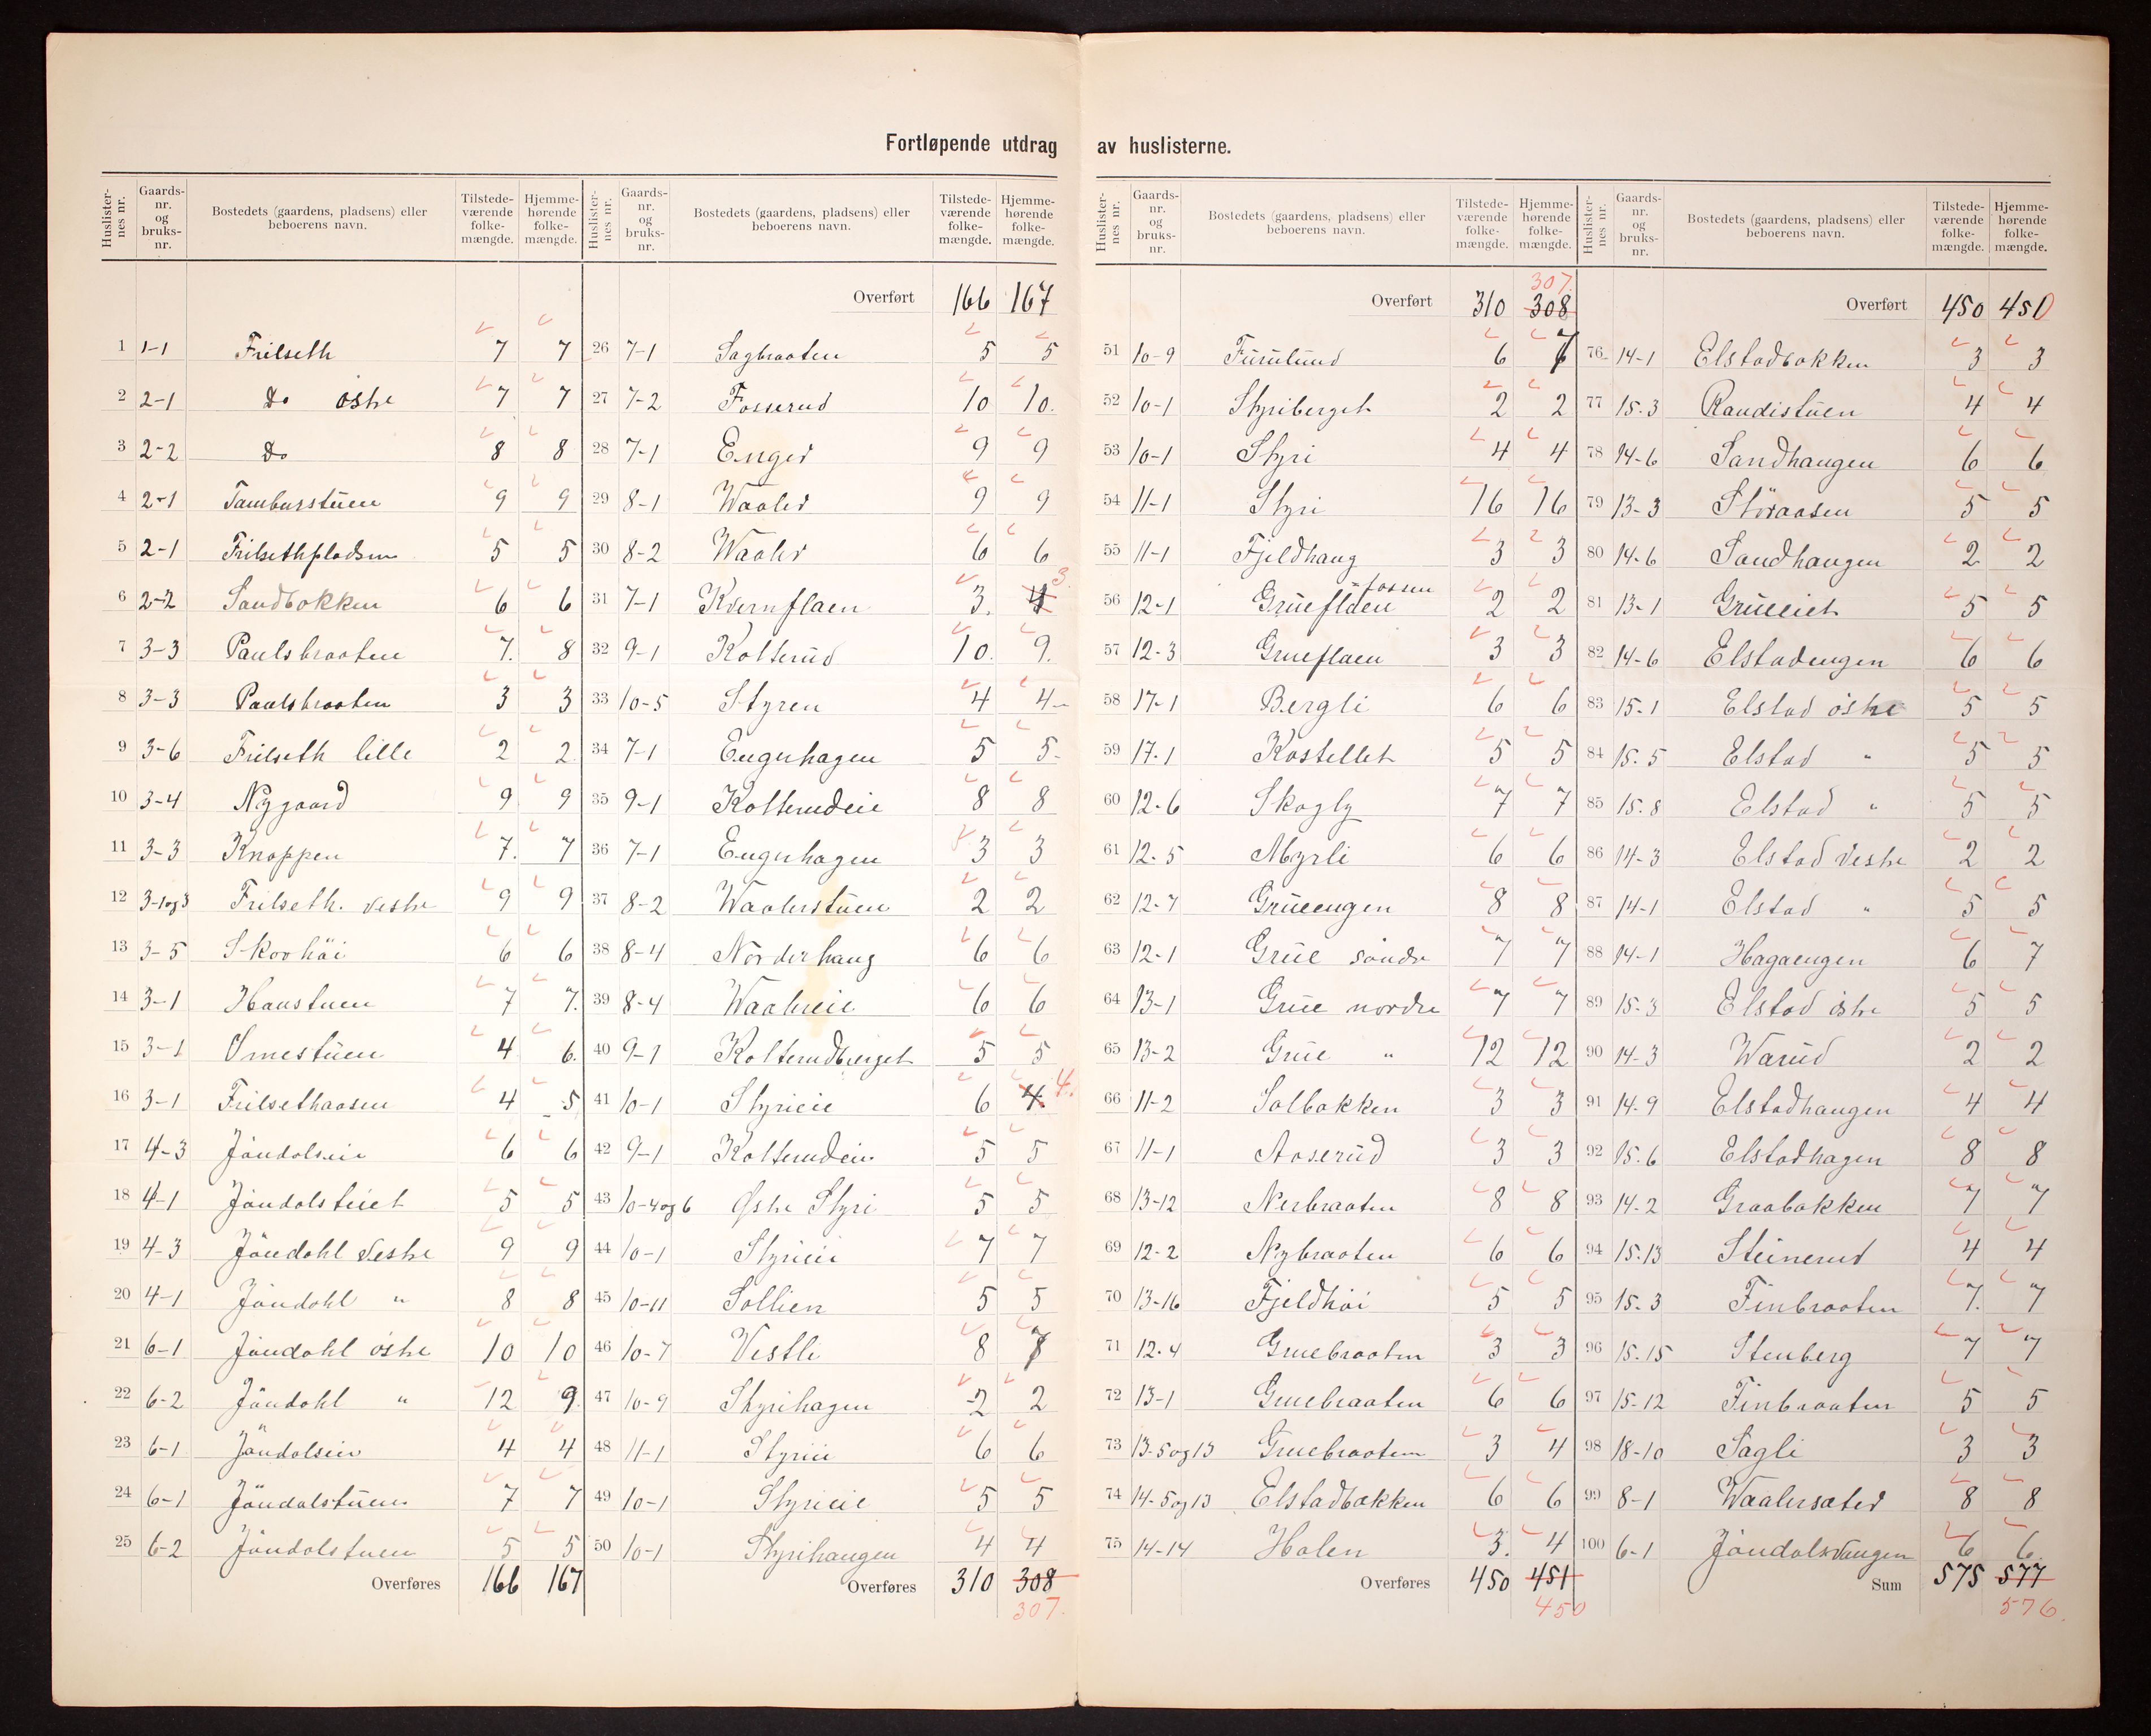 Fortløpende utdrag av huslisterne.
Huslisternes nr. Gaards-nr. og bruks-nr. Bostedets (gaardens, pladsens) eller beboerens navn. Tilstede-værende folke-mængde. Hjemme-hørende folke-mængde.
1 1-1 Frilseth 7 7
2 2-1 do östre 7 7
3 2-2 do 8 8
4 2-1 Tamburstuen 9 9
5 2-1 Frilsethpladsen 5 5
6 2-2 Sandbakken 6 6
7 3-3 Paulsbraaten 7. 8
8 3-3 Paulsbraaten 3 3
9 3-6 Frilseth lille 2 2
10 3-4 Nygaard 9 9
11 3-3 Knappen 7. 7
12 3-1og3 Frilseth. vestre 9 9
13 3-5 Skovhöi 6 6
14 3-1 Haustuen 7 7.
15 3-1 Omestuen 4 6.
16 3-1 Frilsethaasen 4 5
17 4-3 Jöndalseie 6 6
18 4-1 Jöndalseiet 5 5
19 4-3 Jöndahl vestre 9 9
20 4-1 Jöndahl " 8 8
21 6-1 Jöndahl östre 10 10
22 6-2 Jöndahl " 12 9
23 6-1 Jöndalseie 4 4
24 6-1 Jöndalstuen 7 7
25 6-2 Jöndalstuen 5 5
Overføres 166 167
Huslisternes nr. Gaards-nr. og bruks-nr. Bostedets (gaardens, pladsens) eller beboerens navn. Tilstede-værende folke-mængde. Hjemme-hørende folke-mængde.
Overført 166 167
26 7-1 Sagbraaten 5 5
27 7-2 Fosserud 10 10.
28 7-1 Enger 9 9
29 8-1 Waaler 9 9
30 8-2 Waaler 6 6
31 7-1 Kvernflaen 3. 4 3.
32 9-1 Kolterud 10. 9.
33 10-5 Styren 4 4
34 7-1 Engerhagen 5 5
35 9-1 Kolterudeie 8 8
36 7-1 Engerhagen 3 3
37 8-2 Waalerstuen 2 2
38 8-4 Nörderhaug 6 6
39 8-4 Waalereie 6 6
40 9-1 Kolterudberget 5 5
41 10-1 Styrieie 6 4. 4.
42 9-1 Kolterudeie 5 5
43 10-4og6 Østre Styri 5 5
44 10-1 Styrieie 7 7
45 10-11 Sollien 5 5
46 10-7 Vestli 8 7
47 10-9 Styrihagen 2 2
48 11-1 Styrieie 6 6
49 10-1 Styrieie 5 5
50 10-1 Styrihaugen 4 4
Overføres 310 308
307.
Huslisternes nr. Gaards-nr. og bruks-nr. Bostedets (gaardens, pladsens) eller beboerens navn. Tilstede-værende folke-mængde. Hjemme-hørende folke-mængde.
307.
Overført 310 308
51 10-9 Furulund 6 7
52 10-1 Styriberget 2 2
53 10-1 Styri 4 4
54 11-1 Styri 16 16
55 11-1 Fjeldhaug 3 3
56 12-1 Grueflaen -fossen 2 2
57 12-3 Grueflaen 3 3
58 17-1 Bergli 6 6
59 17-1 Kastellet 5 5
60 12-6 Skogly 7 7
61 12-5 Myrli 6 6
62 12-7 Grueengen 8 8
63 12-1 Grue söndre 7 7
64 13-1 Grue nordre 7 7
65 13-2 Grue " 12 12
66 11-2 Solbakken 3 3
67 11-1 Aaserud 3 3
68 13-12 Nerbraaten 8 8
69 12-2 Nybraaten 6 6
70 13-16 Fjeldhöi 5 5
71 12-4 Gruebraaten 3 3
72 13-1 Gruebraaten 6 6
73 13-5og13 Gruebraaten 3 4
74 14-5og13 Elstadbakken 6 6
75 14-14 Holen 3. 4
Overføres 450 451
450
Huslisternes nr. Gaards-nr. og bruks-nr. Bostedets (gaardens, pladsens) eller beboerens navn. Tilstede-værende folke-mængde. Hjemme-hørende folke-mængde.
Overført 450 450
76 14-1 Elstadbakken 3 3
77 15-3 Randistuen 4 4
78 14-6 Sandhaugen 6 6
79 13-3 Störaasen 5 5
80 14-6 Sandhaugen 2 2
81 13-1 Grueeiet 5 5
82 14-6 Elstadengen 6 6
83 15-1 Elstad östre 5 5
84 15-5 Elstad " 5 5
85 15-8 Elstad " 5 5
86 14-3 Elstad vestre 2 2
87 14-1 Elstad " 5 5
88 14-1 Hagaengen 6 7
89 15-3 Elstad östre 5 5
90 14-3 Warud 2 2
91 14-9 Elstadhaugen 4 4
92 15-6 Elstadhagen 8 8
93 14-2 Graabakken 7 7
94 15-13 Steinerud 4 4
95 15-3 Finbraaten 7. 7
96 15-15 Stenberg 7 7
97 15-12 Finbraaten 5 5
98 18-10 Sagli 3 3
99 8-1 Waalersæter 8 8
100 6-1 Jöndalsvangen 6 6.
Sum 575 577
576.